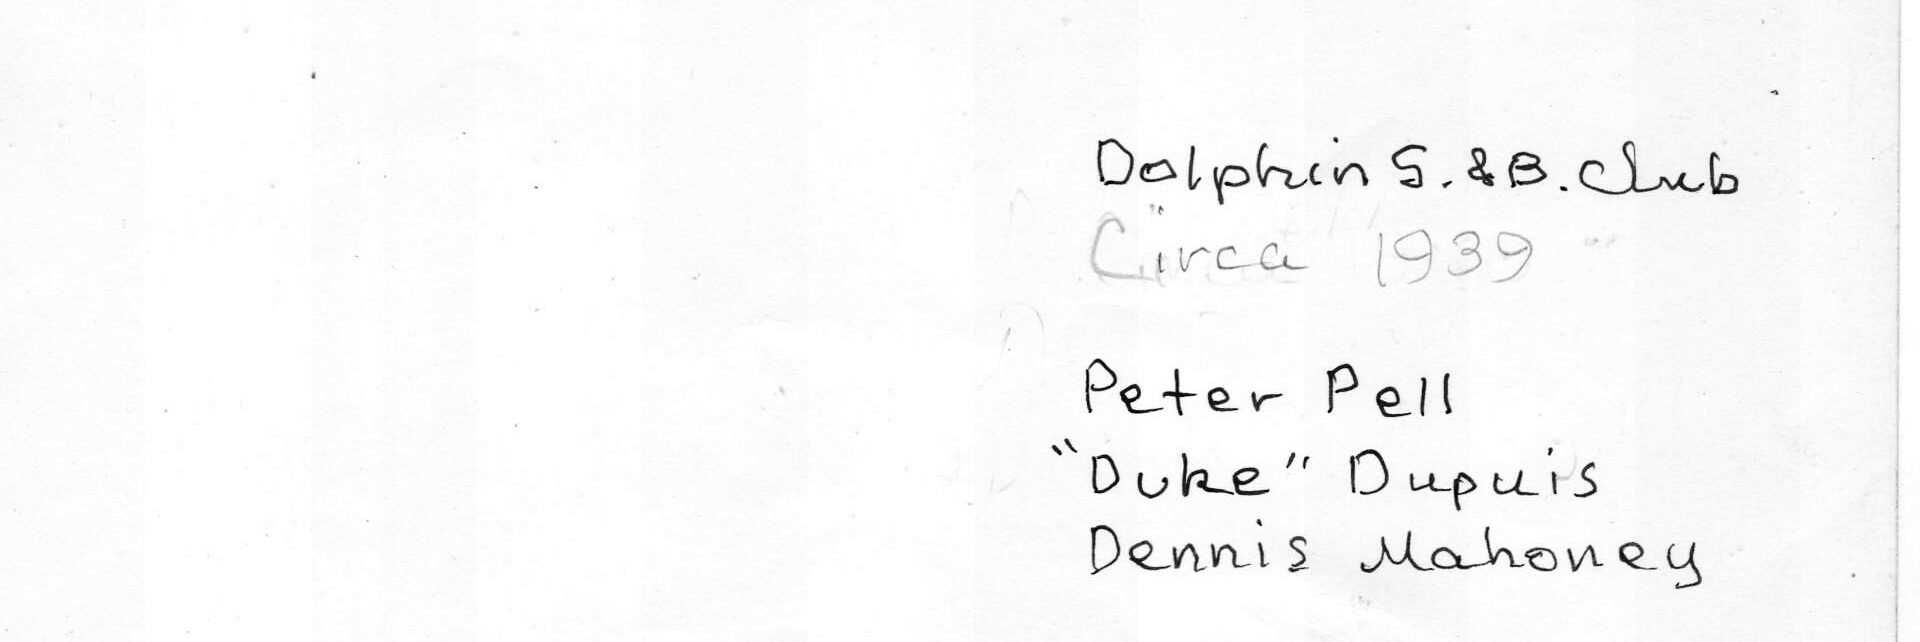 Dolphin S. & B. Club
Circa 1939
Peter Pell
"Duke" Dupuis
Dennis Mahoney